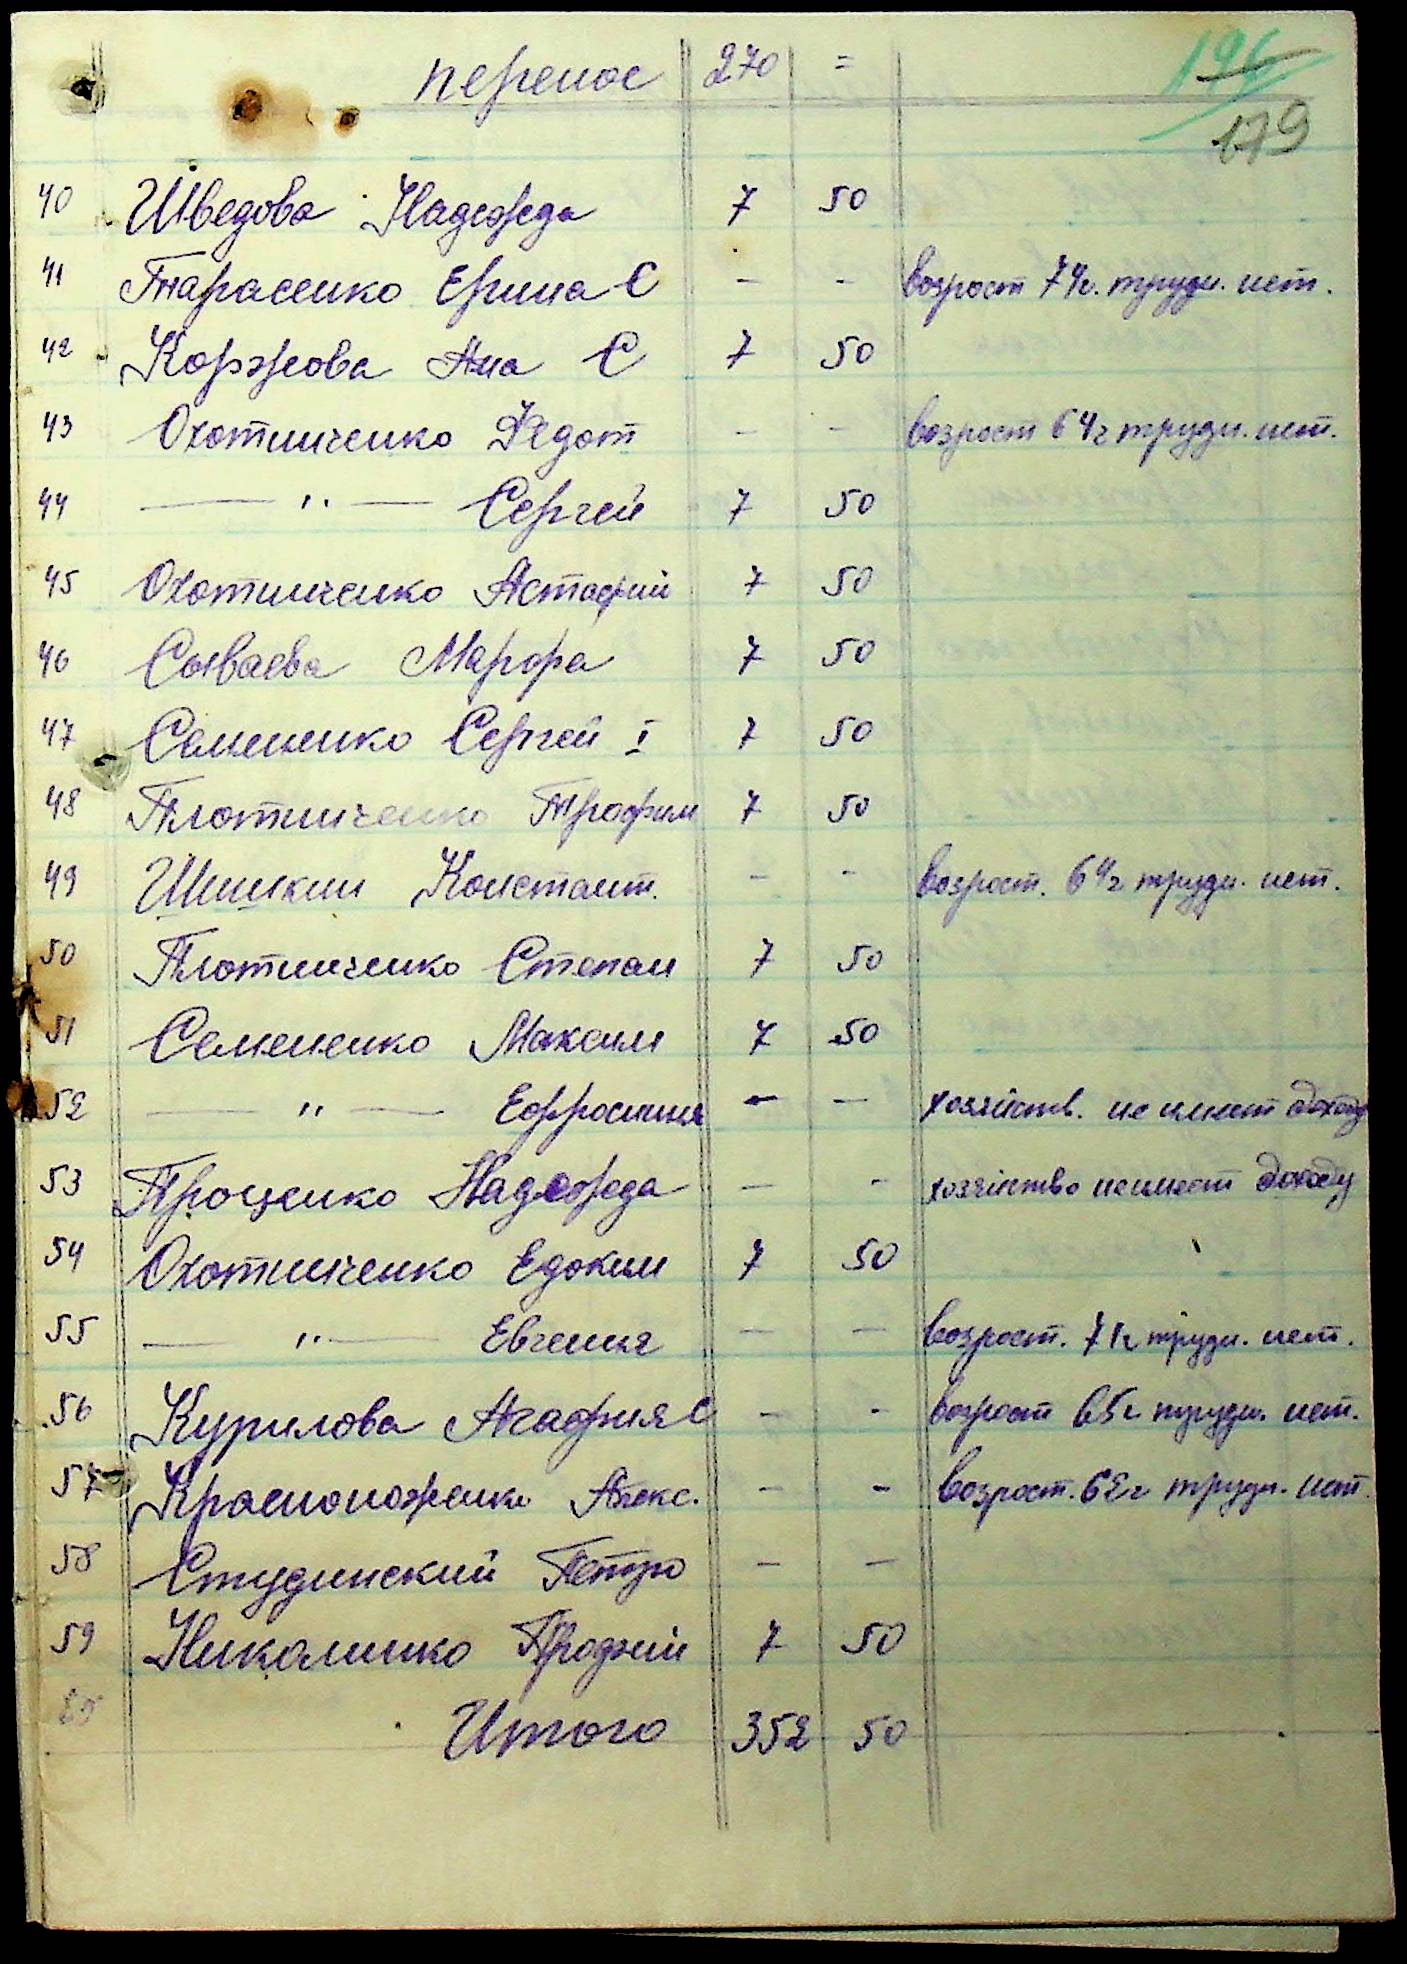 196
перенос 270 =
179
40 Шведова Надежда 7 50
41 Тарасенко Ерина С - - возраст 74г. трудн. нет.
42 Коржова Ана С 7 50
43 Охотниченко Федот - - возраст 64г трудн. нет.
44 — " — Сергей 7 50
45 Охотниченко Астафий 7 50
46 Сываева Марфа 7 50
47 Семененко Сергей I 7 50
48 Плотниченко Трофим 7 50
49 Шишкин Констант. - - возраст. 64г трудн. нет.
50 Плотниченко Степан 7 50
51 Семененко Максим 7 50
52 — " — Ефросиния - - хозяйств. не имеет доходу
53 Проценко Надежда - - хозяйство не имеет доходу
54 Охотниченко Едоким 7 50
55 — " — Евгения - - возраст. 71г трудн. нет.
56 Курилова Агафия С - - возраст 65г трудн. нет.
57 Красноноженко Алекс. - - возраст. 62г трудн. нет.
58 Студинский Петро - -
59 Николинко Профий 7 50
Итого 352 50